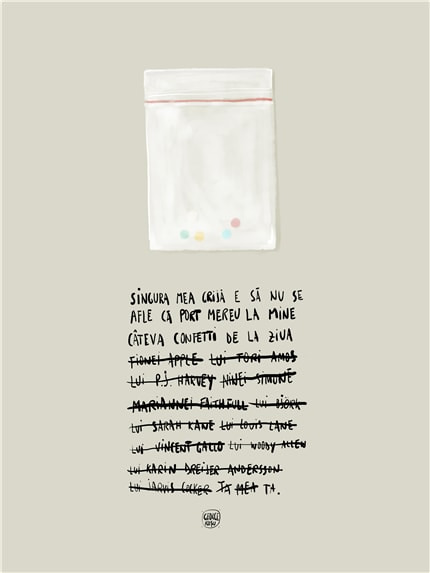 SINGURA MEA GRIJĂ E SĂ NU SE
AFLE CĂ PORT MEREU LA MINE
CÂTEVA CONFETTI DE LA ZIUA
FIONEI APPLE LUI TORI AMOS
LUI P.J. HARVEY NINEI SIMONE
MARIANNEI FAITHFULL LUI BJÖRK
LUI SARAH KANE LUI LOUIS LANE
LUI VINCENT GALLO LUI WOODY ALLEN
LUI KARIN DREIJER ANDERSSON
LUI JARVIS COCKER TA MEA TA.